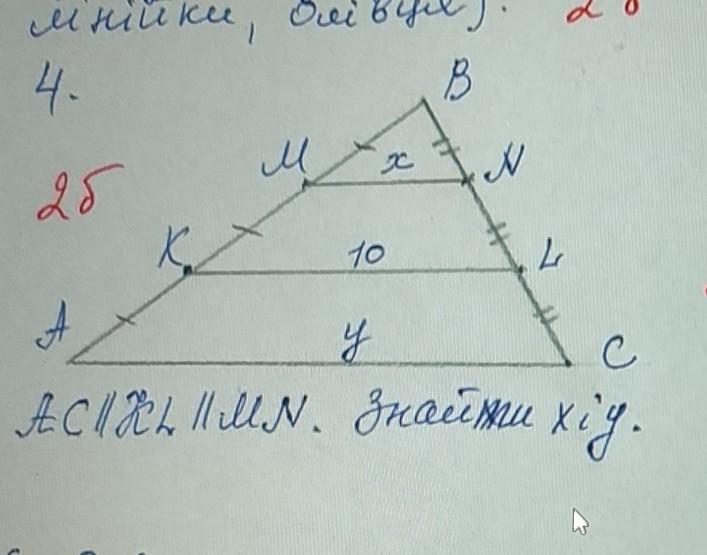 лінійки, олівця). 2 б
4.
B
M x N
2б
K 10 L
A y C
AC||KL||MN. Знайти x і y.